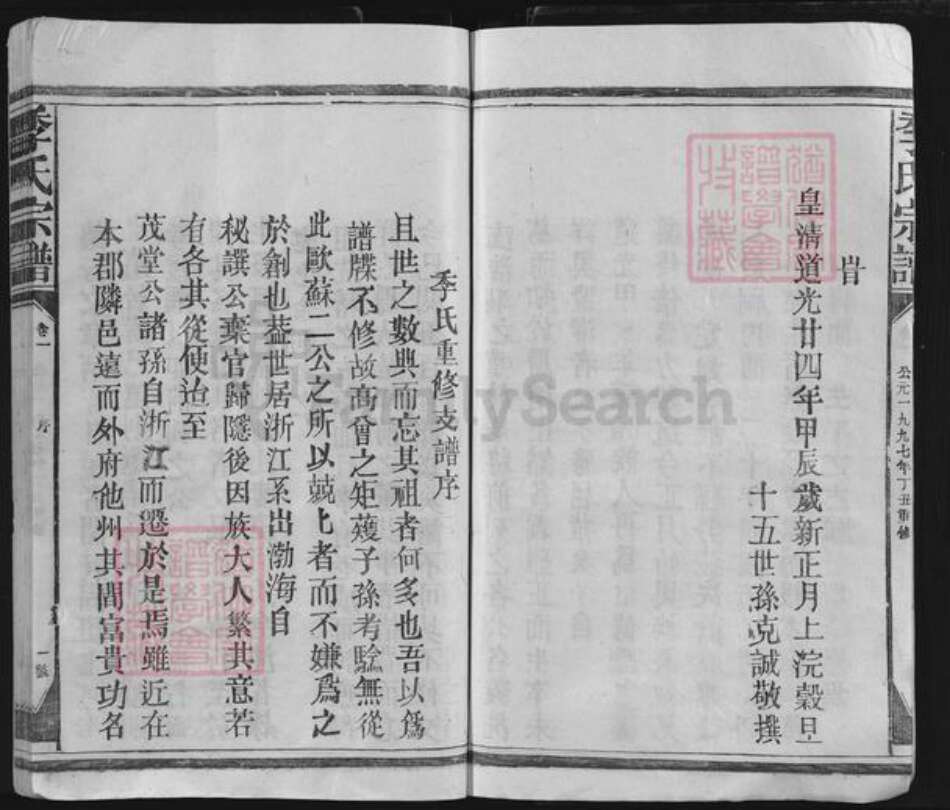 旹
皇清道光廿四年甲辰歲新正月上浣穀旦
十五世孫克誠敬撰
公元一九九七年丁丑重修
季氏重修支譜序
且世之數典而忘其祖者何多也吾以爲
譜牒不修故高曾之矩薉子孫考騐無從
此歐蘇二公之所以兢匕者而不嫌爲之
於創也葢世居浙江系出渤海自
秘譔公棄官歸隱後因族大人繁其意若
有各其從使迨至
茂堂公諸孫自浙江而遷於是焉雖近在
本郡隣邑遠而外府他州其間富貴功名
季氏宗譜
卷一
序
一
FamilySearch
譜學會
收藏